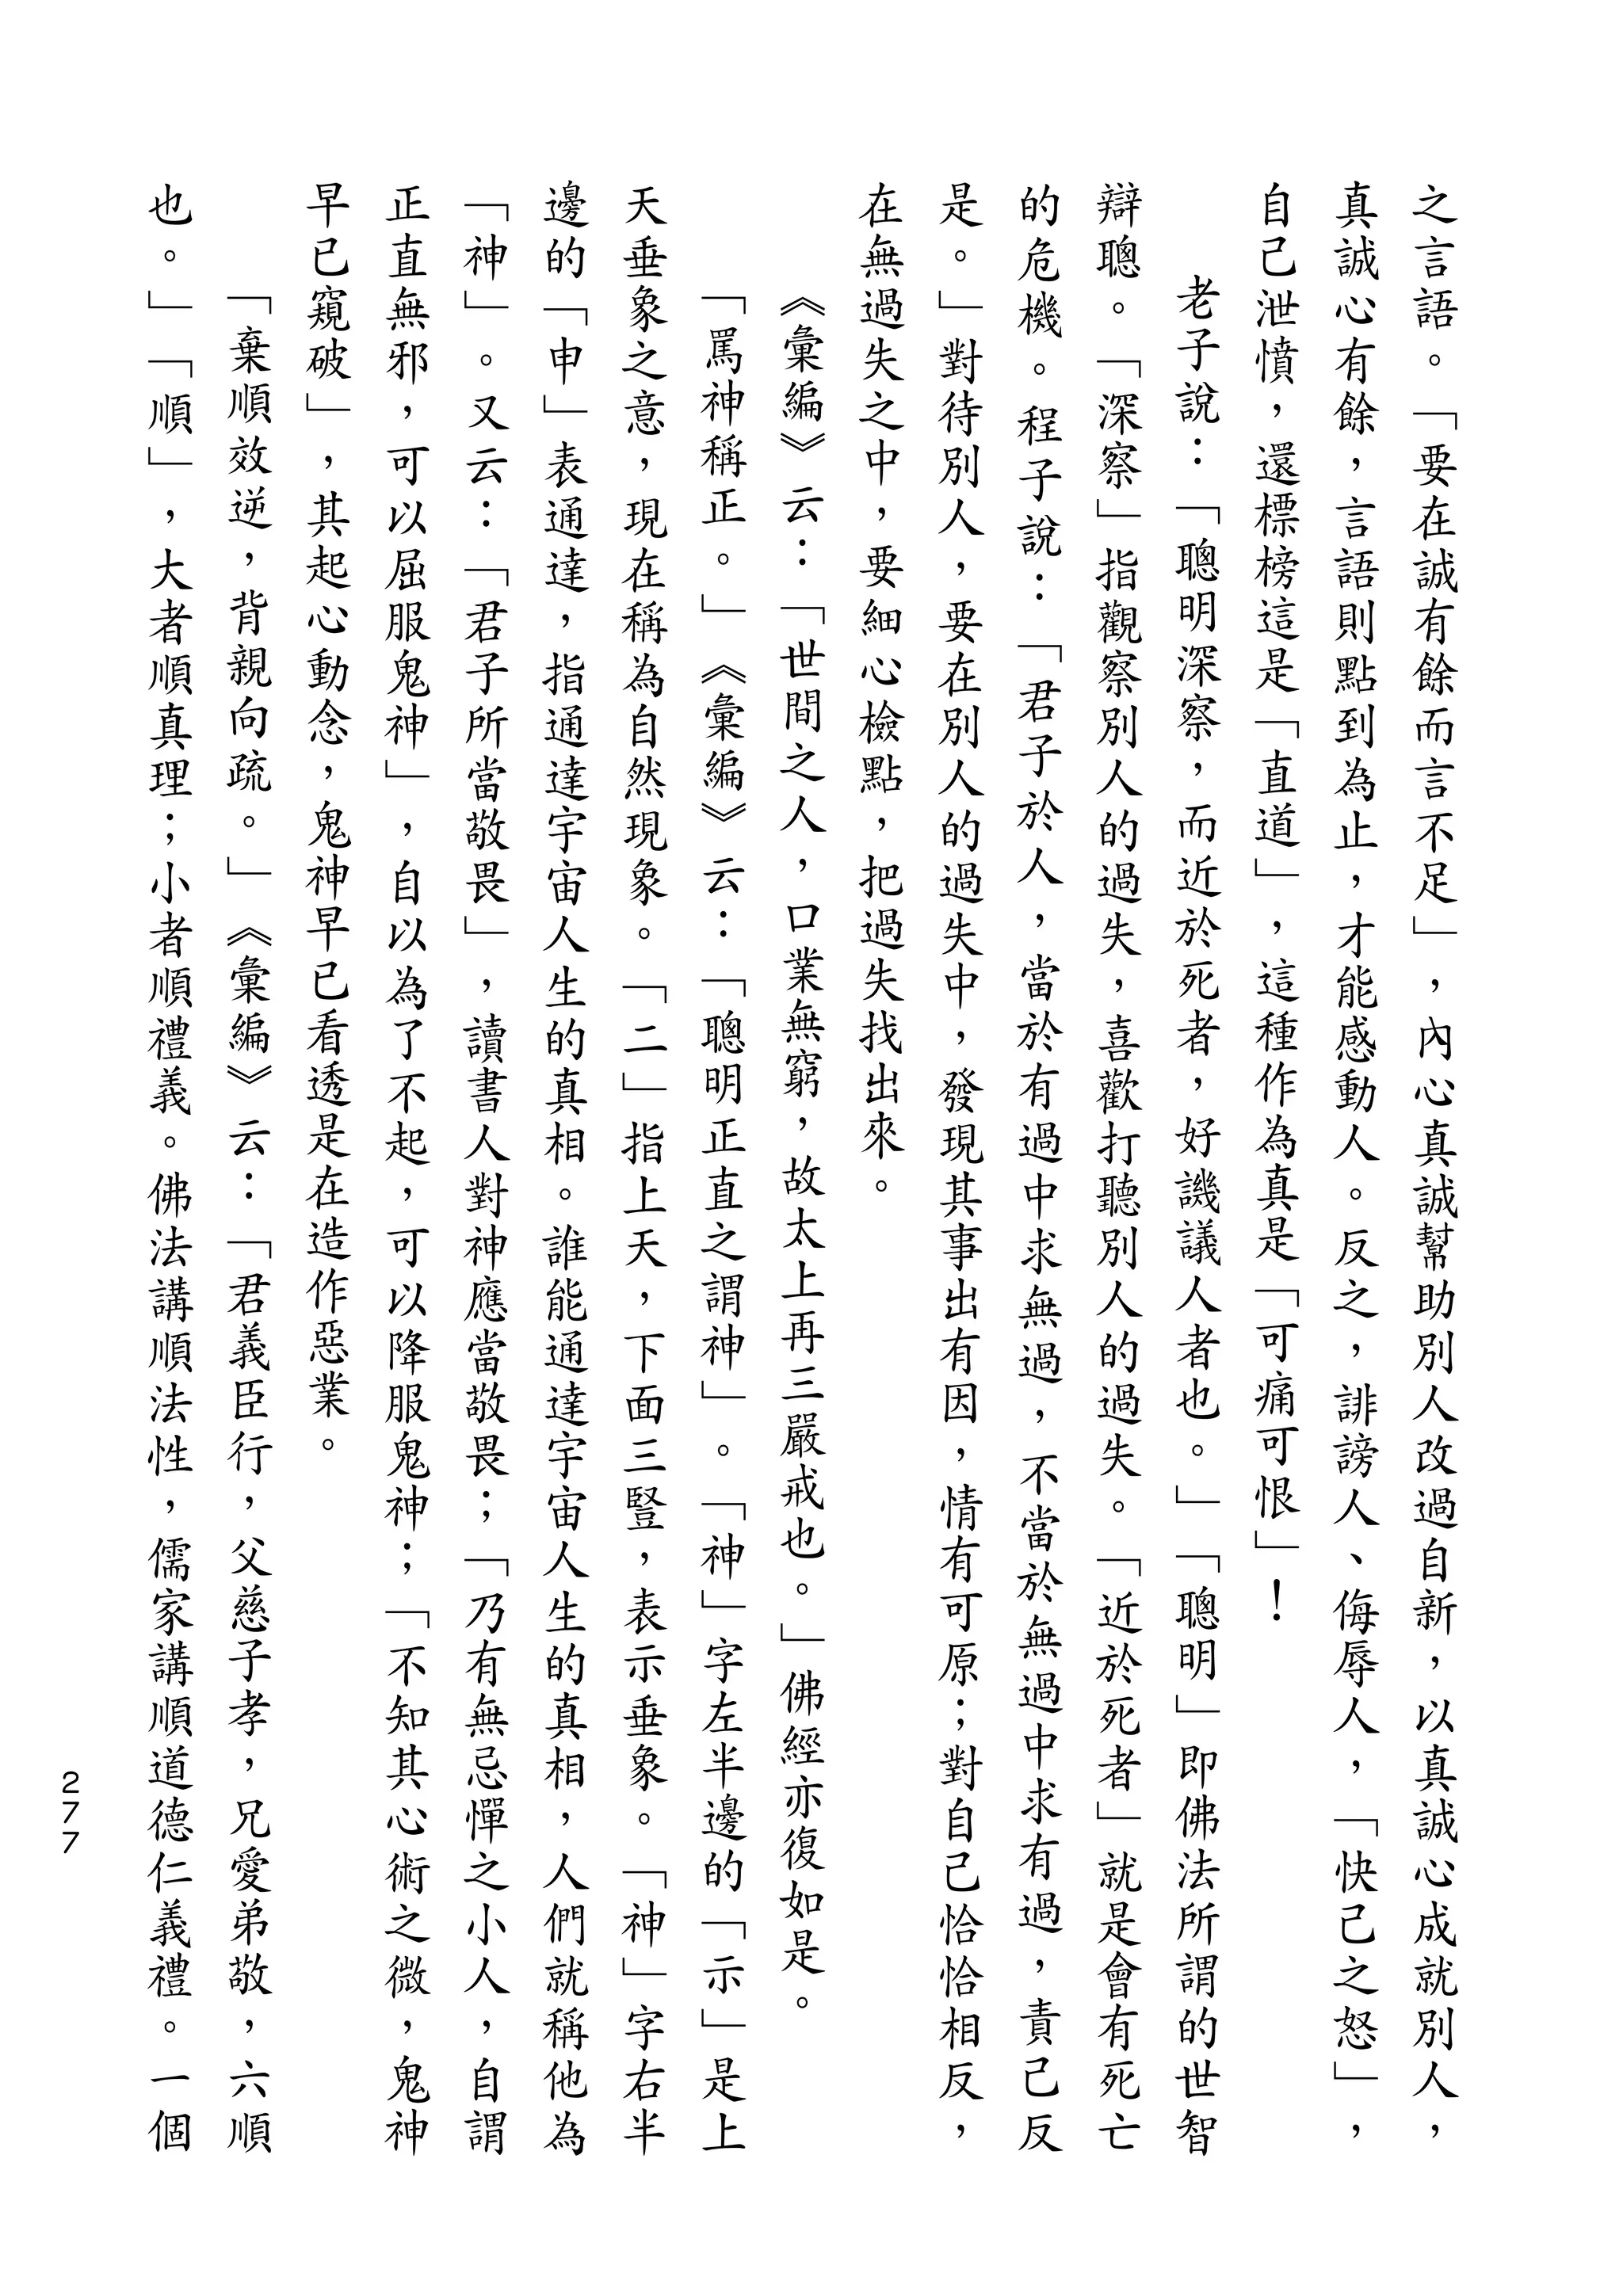 之言語。「要在誠有餘而言不足」，內心真誠幫助別人改過自新，以真誠心成就別人，
真誠心有餘，言語則點到為止，才能感動人。反之，誹謗人、侮辱人，「快己之怒」，
自己泄憤，還標榜這是「直道」，這種作為真是「可痛可恨」！
老子說：「聰明深察，而近於死者，好譏議人者也。」「聰明」即佛法所謂的世智
辯聰。「深察」指觀察別人的過失，喜歡打聽別人的過失。「近於死者」就是會有死亡
的危機。程子說：「君子於人，當於有過中求無過，不當於無過中求有過，責己反
是。」對待別人，要在別人的過失中，發現其事出有因，情有可原；對自己恰恰相反，
在無過失之中，要細心檢點，把過失找出來。
《彙編》云：「世間之人，口業無窮，故太上再三嚴戒也。」佛經亦復如是。
「罵神稱正。」《彙編》云：「聰明正直之謂神」。「神」字左半邊的「示」是上
天垂象之意，現在稱為自然現象。「二」指上天，下面三豎，表示垂象。「神」字右半
邊的「申」表通達，指通達宇宙人生的真相。誰能通達宇宙人生的真相，人們就稱他為
「神」。又云：「君子所當敬畏」，讀書人對神應當敬畏；「乃有無忌憚之小人，自謂
正直無邪，可以屈服鬼神」，自以為了不起，可以降服鬼神；「不知其心術之微，鬼神
早已窺破」，其起心動念，鬼神早已看透是在造作惡業。
「棄順效逆，背親向疏。」《彙編》云：「君義臣行，父慈子孝，兄愛弟敬，六順
也。」「順」，大者順真理；小者順禮義。佛法講順法性，儒家講順道德仁義禮。一個
277